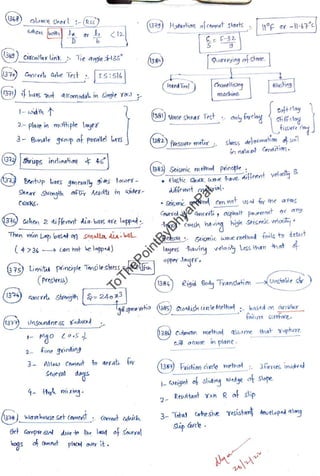 1368 Column Short :- (RCC)
when both lex/D or ley/b < 12
1369 Circular link :- Tie angle > 135°
1370 Concrete Cube Test : IS : 516
1371 if bars not accomodate in single row :-
1- width ↑
2- place in multiple layer
3- Bundle group of parallel bars
1372 Stirrups inclination ≮ 45°
1373 Bentup bars generally gives lower
Shear strength often results in wider
cracks.
1374 When 2 different dia bars are lapped.
Then min Lap based on smaller dia bar
( φ > 36 → can not be lapped)
1375 Limited Principle Tensile stress
(Prestress)
1376 Concrete strength S = 240 x³
gel space ratio
1377 Unsoundness Reduced :
1- MgO < 0.5 %
2- Fine grinding
3- Allow cement to aerate for
several days
4- thorough mixing.
1378 Warehouse set cement : cement which
get compressed due to the load of several
bags of cement placed over it.
1379 Hydration of cement starts : 11°F or -11.67°C
C/5 = F-32/9
1380 Quarrying of stone
Hand Tool
Channelling
machine
Blasting
1381 Vane shear Test : only for clay
Soft clay
Stiff clay
fissure clay
1382 Pressure meter : stress deformation of soil
in natural condition.
1383 Seismic method principle :
• Elastic shock wave have different velocity in
different material.
• Seismic method can not used for the areas
covered by concrete, asphalt pavement or any
crust having high seismic velocity.
Reason : Seismic wave method fails to detect
layers having velocity less than that of
upper layer.
1384 Rigid Body Translation → Unstable str
1385 Swedish circle Method : based on circular
failure surface.
1386 Culmann method assume that rupture
will occur in plane.
1387 Friction circle method : 3 forces involved
1- Weight of sliding wedge of slope
2- Resultant rxn R of slip
3- Total cohesive resistance developed along
slip circle.
ToThePointByDhyanPal